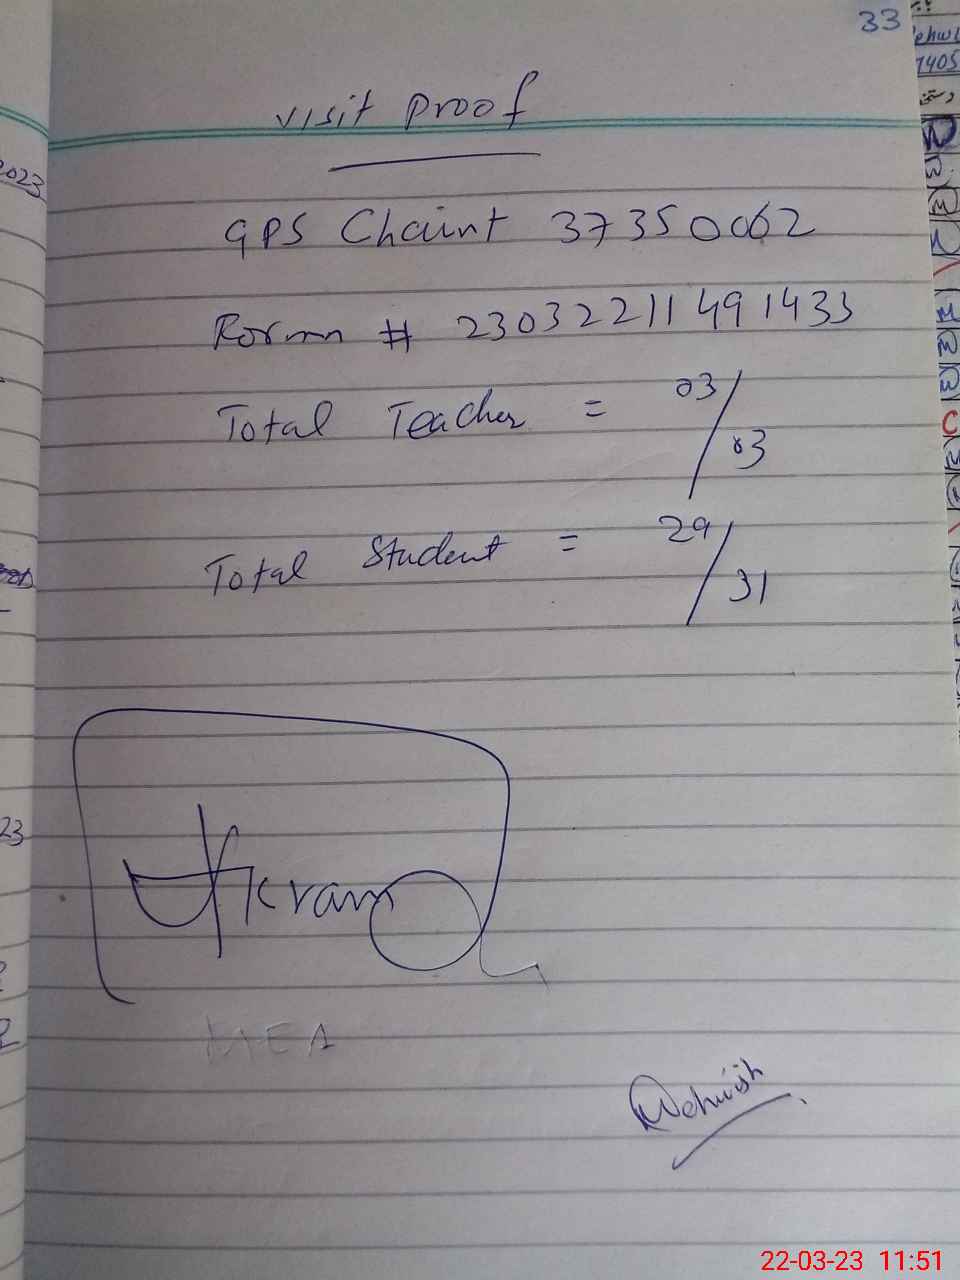 33
visit proof
GPS Chaint 37350062
# 23032211491433
Total Teacher = 03/03
Total Student = 29/31
Ikram
MEA
Mehwish
2023
23
22-03-23 11:51